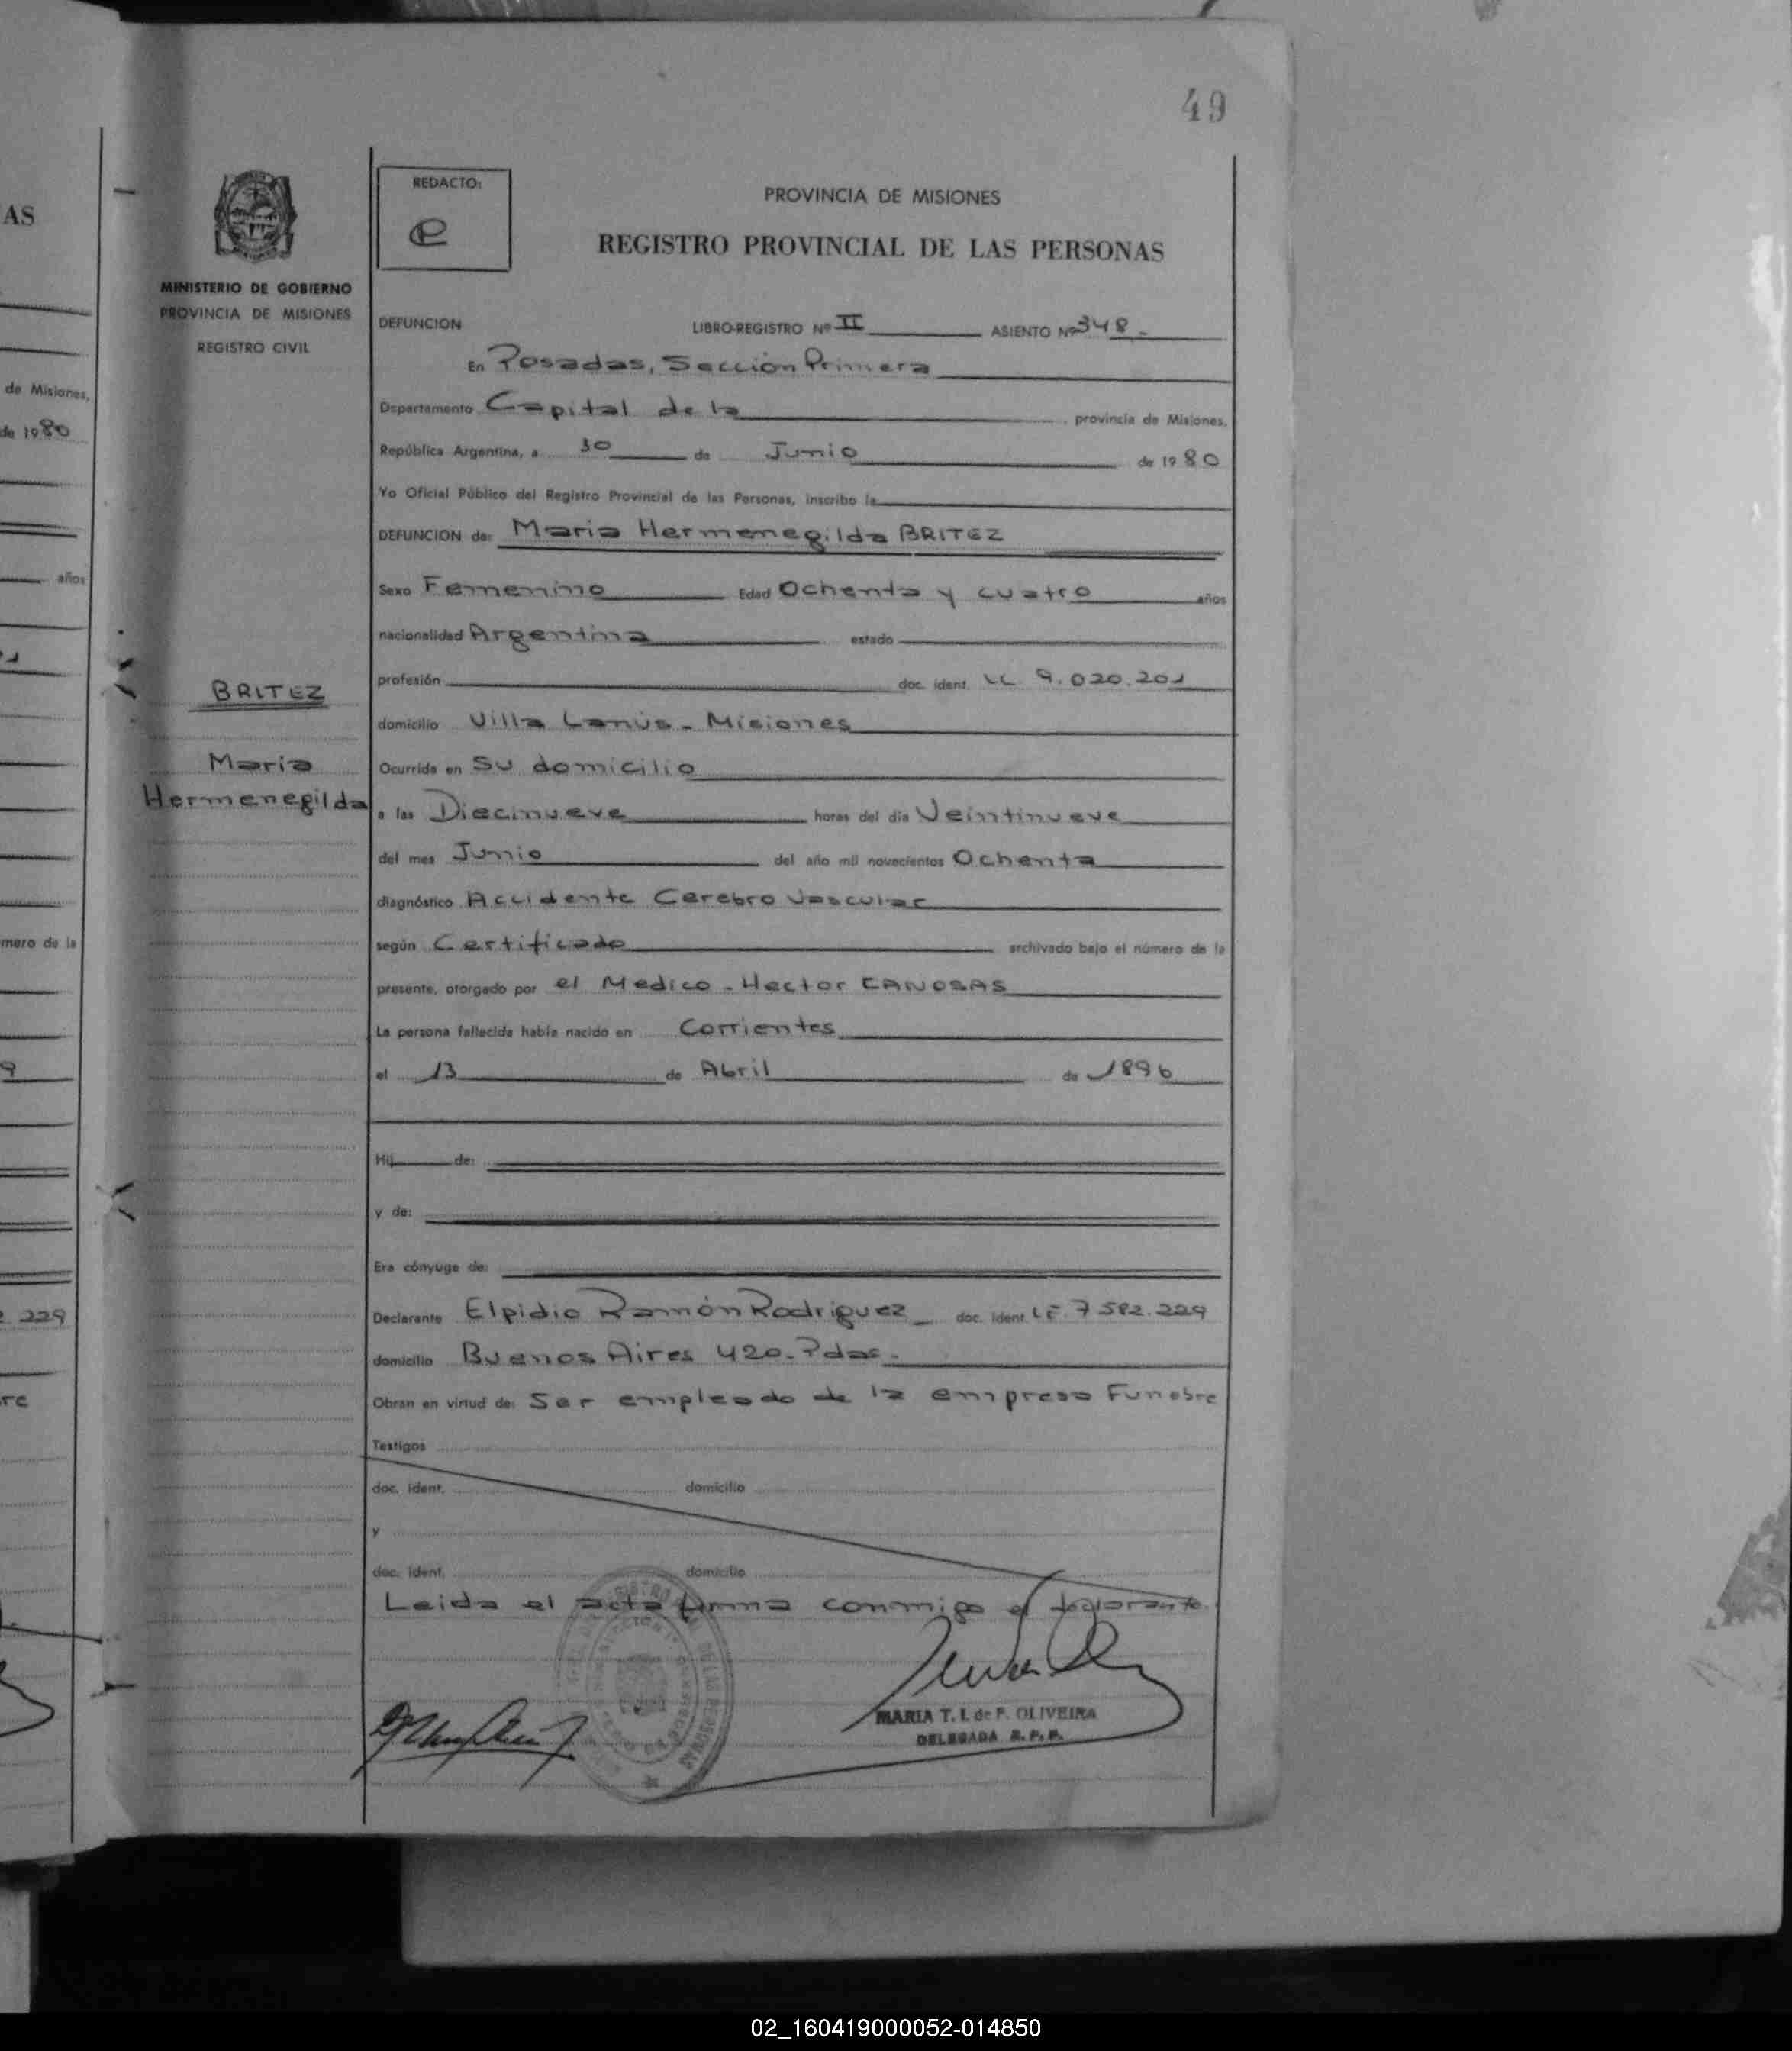 49
AS
de Misiones,
de 1980
años
mero de la
9
229
re
MINISTERIO DE GOBIERNO
PROVINCIA DE MISIONES
REGISTRO CIVIL
BRITEZ
Maria
Hermenegilda
REDACTO:
PROVINCIA DE MISIONES
REGISTRO PROVINCIAL DE LAS PERSONAS
DEFUNCION LIBRO-REGISTRO Nº II ASIENTO Nº 348.-
En Posadas, Sección Primera
Departamento Capital de la provincia de Misiones,
República Argentina, a 30 de Junio de 1980
Yo Oficial Público del Registro Provincial de las Personas, inscribo la
DEFUNCION de: Maria Hermenegilda BRITEZ
Sexo Femenino Edad Ochenta y cuatro años
nacionalidad Argentina estado
profesión doc. ident. LC 9.020.201
domicilio Villa Lanús - Misiones
Ocurrida en Su domicilio
a las Diecinueve horas del día Veintinueve
del mes Junio del año mil novecientos Ochenta
diagnóstico Accidente Cerebro Vascular
según Certificado archivado bajo el número de la
presente, otorgado por el Medico - Hector CANOSAS
La persona fallecida había nacido en Corrientes
el 13 de Abril de 1896
Hij de:
y de:
Era cónyuge de:
Declarante Elpidio Ramón Rodriguez - doc. ident. LE. 7 582.229
domicilio Buenos Aires 420 - Pdas.-
Obran en virtud de: Ser empleado de la empresa Funebre
Testigos
doc. ident. domicilio
y
doc. ident. domicilio
Leida el acta firma conmigo el declarante.
MARIA T. I. de P. OLIVEIRA
DELEGADA R. P. P.
02_160419000052-014850